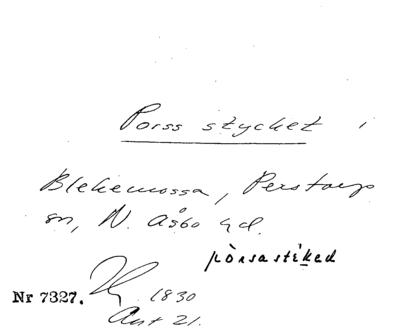 Porss stycket i
Blekemossa, Perstorps
sn, N. Åsbo hd.
pòrsastiḱed
Nr 7327. 1830
Ant 21.